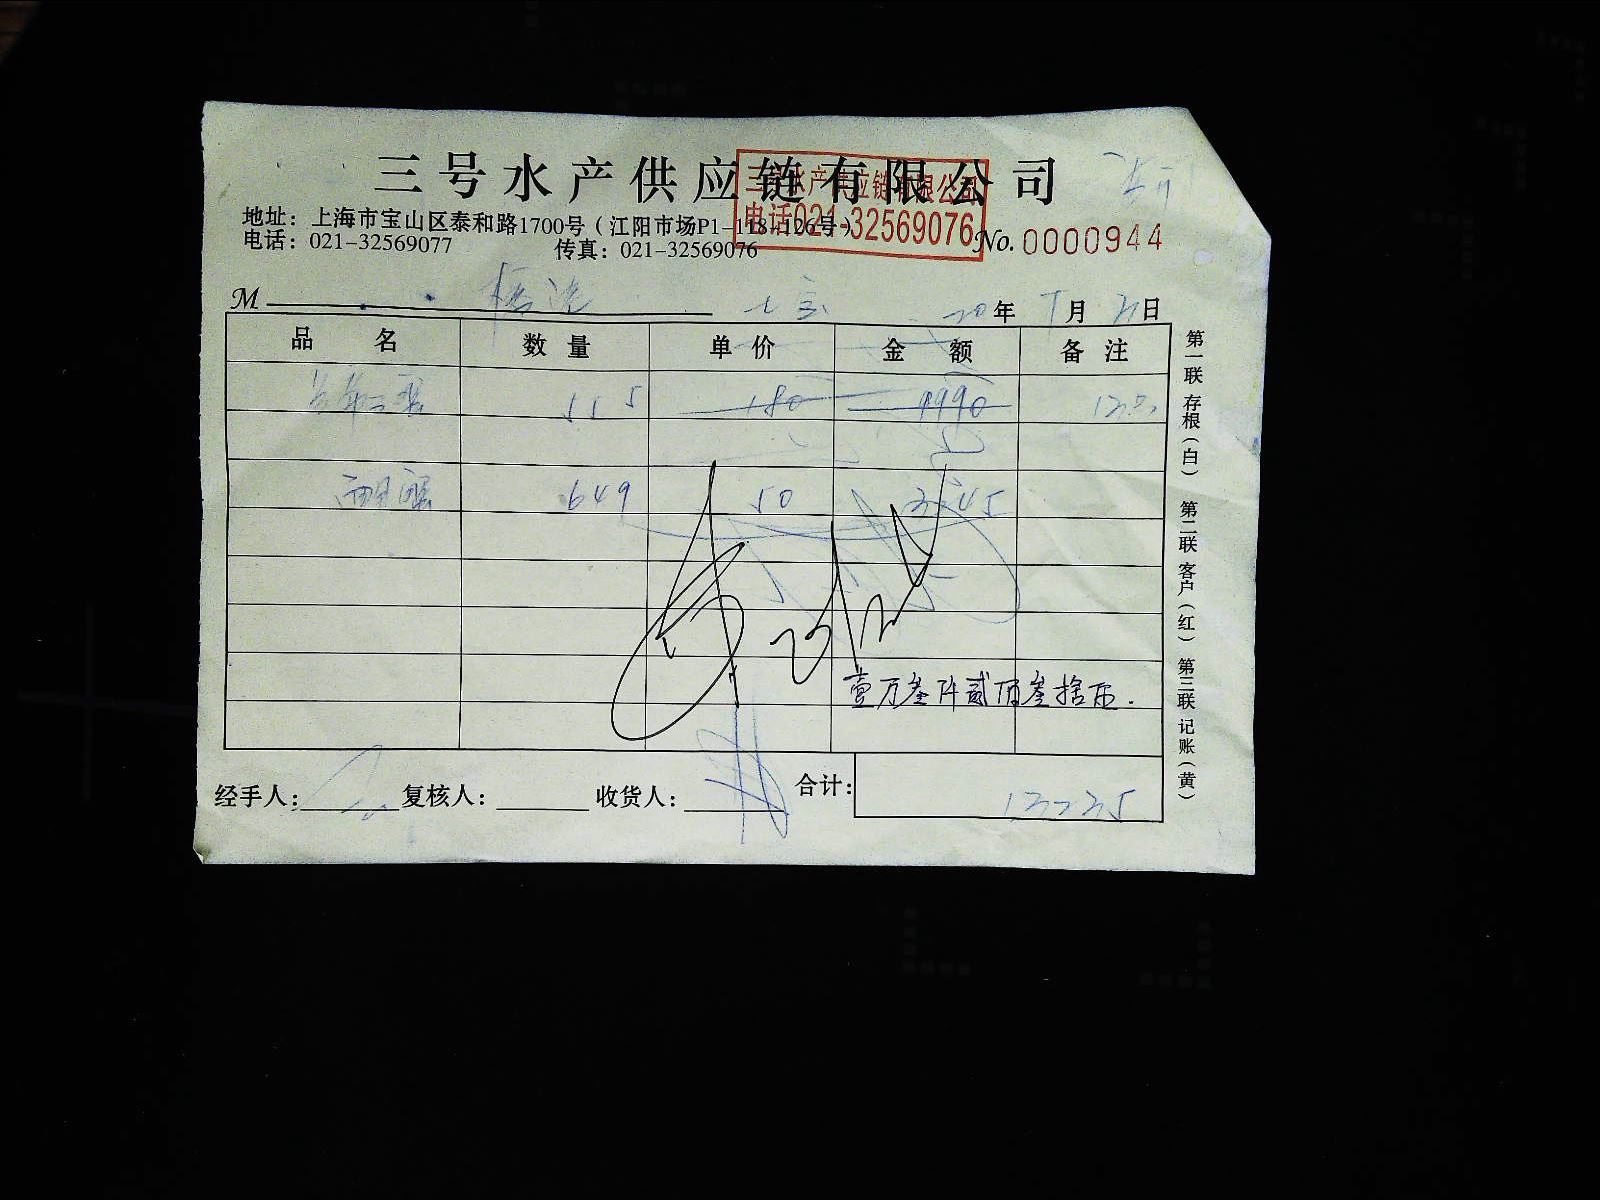 三号水产供应链有限公司
三号水产供应链有限公司
电话021-32569076
地址：上海市宝山区泰和路1700号（江阳市场P1-118-126号）
电话：021-32569077 传真：021-32569076
No. 0000944
M 20年 月 日
品名 数量 单价 金额 备注
180 9990
649 50 3245
壹万叁仟贰佰叁拾伍.
经手人： 复核人： 收货人： 合计：13235
第一联 存根（白） 第二联 客户（红） 第三联 记账（黄）